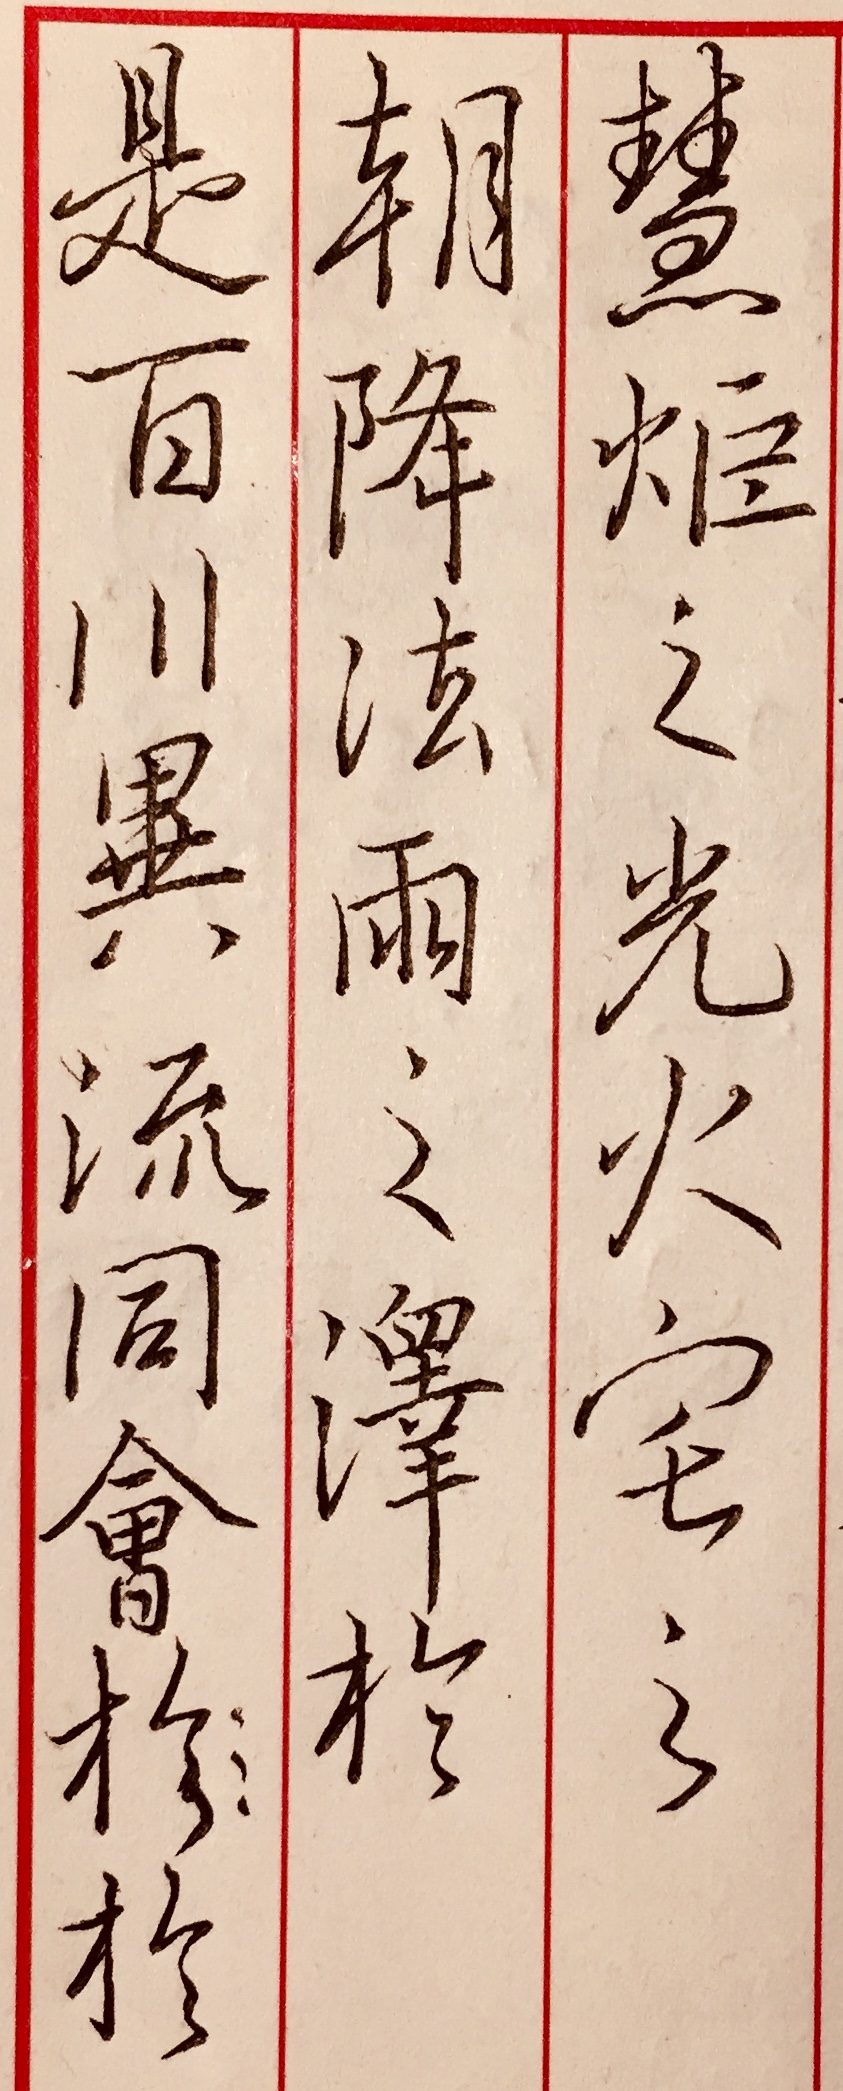 慧炬之光火宅之
朝降法雨之澤於
是百川異流同會於